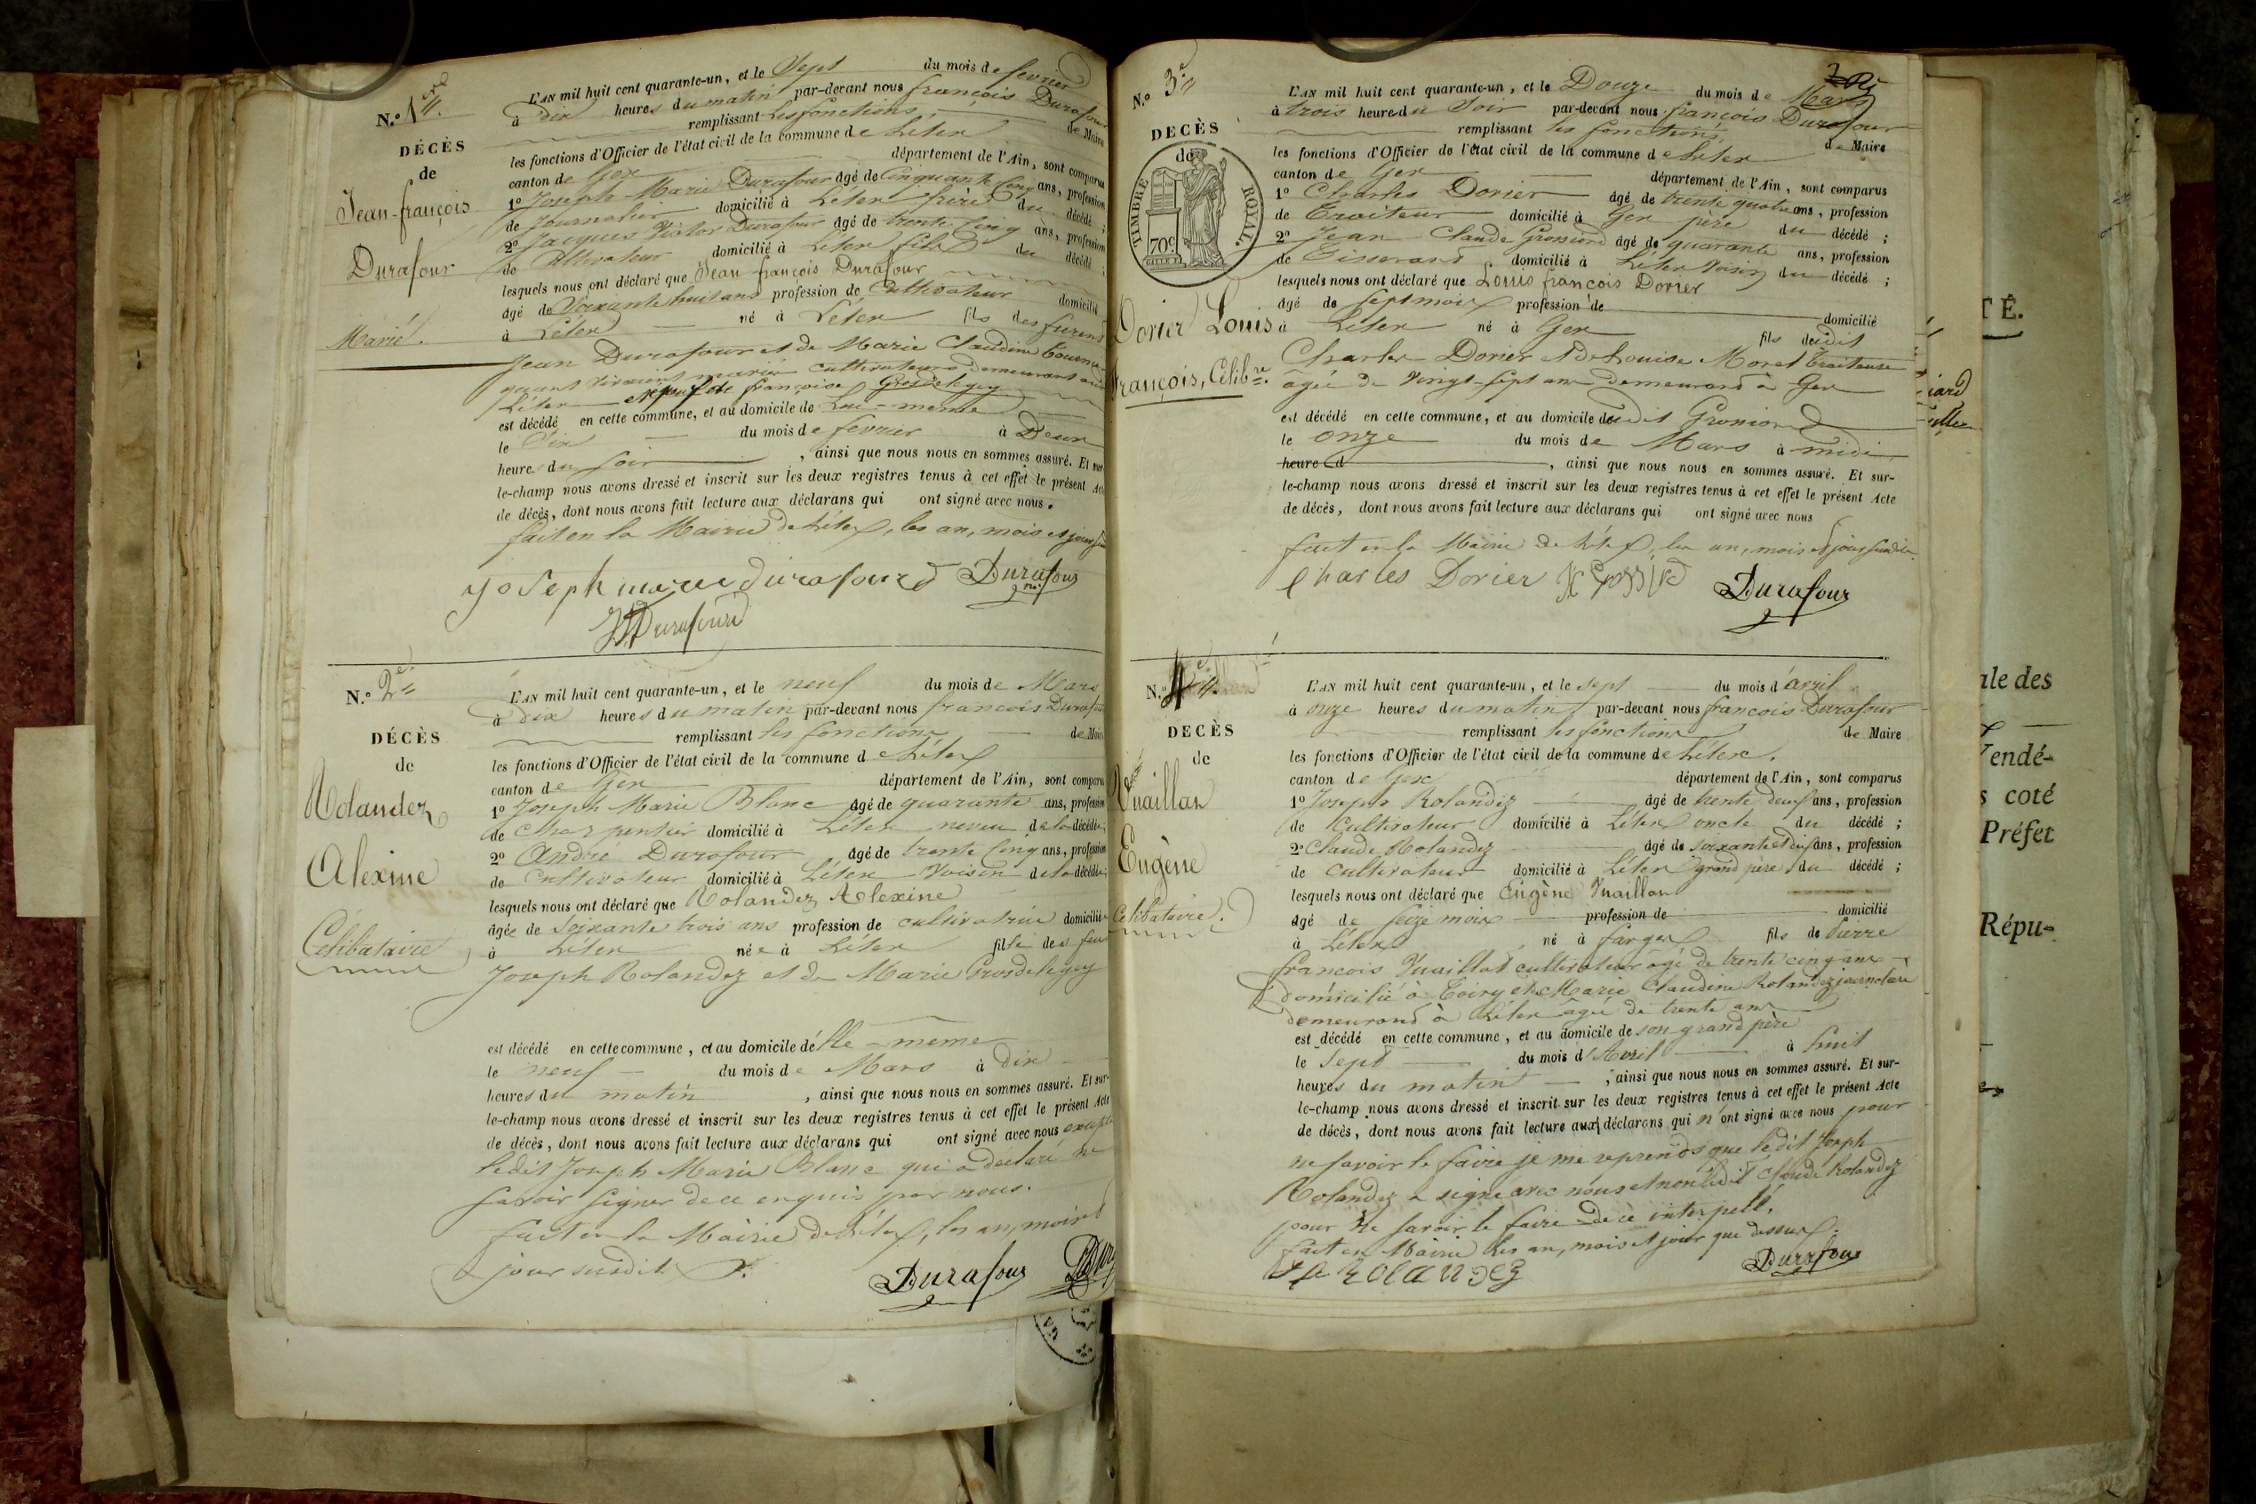 N.º 1ere
DÉCÈS
de
Jean-françois
Durafour
Marié.
L'AN mil huit cent quarante-un, et le Sept du mois de fevrier
à dix heures du matin par-devant nous françois Durafour
remplissant les fonctions de Maire
les fonctions d'Officier de l'état civil de la commune de Lélex
canton de Gex département de l'Ain, sont comparus
1º Joseph Marie Durafour âgé de Cinquante Cinq ans, profession
de Journalier domicilié à Lélex frère du décédé ;
2º Jacques Victor Durafour âgé de trente Cinq ans, profession
de Cultivateur domicilié à Lélex fils du décédé ;
lesquels nous ont déclaré que Jean françois Durafour
âgé de Soixante huit ans profession de Cultivateur domicilié
à Lélex né à Lélex fils des furent
Jean Durafour et de Marie Claudine
quant vivaient mariés cultivateurs demeurant
Lélex françoise Grosdelegey
est décédé en cette commune, et au domicile de Lui-meme
le Six du mois de fevrier à Deux
heures du soir , ainsi que nous nous en sommes assuré. Et sur-
le-champ nous avons dressé et inscrit sur les deux registres tenus à cet effet le présent Acte
de décès, dont nous avons fait lecture aux déclarans qui ont signé avec nous.
fait en la Mairie de Lélex, les an, mois et jour
yoseph marie durafourd Durafour
JV Durafourd
N.º 2e
DÉCÈS
de
Rolandez
Alexine
Célibataire
L'AN mil huit cent quarante-un, et le neuf du mois de Mars
à dix heures du matin par-devant nous françois Durafour
remplissant les fonctions de Maire
les fonctions d'Officier de l'état civil de la commune de Lélex
canton de Gex département de l'Ain, sont comparus
1º Joseph Marie Blanc âgé de quarante ans, profession
de charpentier domicilié à Lélex neveu de la décédée
2º André Durafour âgé de trente Cinq ans, profession
de Cultivateur domicilié à Lélex Voisin de la décédée
lesquels nous ont déclaré que Rolandez Alexine
âgée de soixante trois ans profession de cultivatrice domiciliée
à Lélex née à Lélex fille des feu
Joseph Rolandez et de Marie Grosdelegey
est décédé en cette commune, et au domicile d'elle-meme
le neuf du mois de Mars à dix
heures du matin , ainsi que nous nous en sommes assuré. Et sur-
le-champ nous avons dressé et inscrit sur les deux registres tenus à cet effet le présent Acte
de décès, dont nous avons fait lecture aux déclarans qui ont signé avec nous excepté
ledit Joseph Marie Blanc qui a déclaré ne
savoir signer de ce enquis par nous.
fait en la Mairie de Lélex, les an, mois et
jour susdits
Durafour
N.º 3e
DÉCÈS
de
TIMBRE ROYAL.
70c
Dorier Louis
françois, Célibre.
L'AN mil huit cent quarante-un, et le Douze du mois de Mars
à trois heures du Soir par-devant nous françois Durafour
remplissant les fonctions de Maire
les fonctions d'Officier de l'état civil de la commune de Lélex
canton de Gex département de l'Ain, sont comparus
1º Charles Dorier âgé de trente quatre ans, profession
de Traiteur domicilié à Gex père du décédé ;
2º Jean Claude Grossiord âgé de quarante ans, profession
de Tisserand domicilié à Lélex Voisin du décédé ;
lesquels nous ont déclaré que Louis françois Dorier
âgé de Sept mois profession de domicilié
à Lélex né à Gex fils dudit
Charles Dorier et de Louise Morel Traiteuse
âgée de Vingt-sept ans demeurant à Gex
est décédé en cette commune, et au domicile dudit Grossiord
le onze du mois de Mars à midi
heure d , ainsi que nous nous en sommes assuré. Et sur-
le-champ nous avons dressé et inscrit sur les deux registres tenus à cet effet le présent Acte
de décès, dont nous avons fait lecture aux déclarans qui ont signé avec nous
fait en la Mairie de Lélex, les an, mois et jour susdits
Charles Dorier Durafour
N.º 4e
DÉCÈS
de
Vuaillat
Eugène
Célibataire.
L'AN mil huit cent quarante-un, et le sept du mois d'avril
à onze heures du matin par-devant nous françois Durafour
remplissant les fonctions de Maire
les fonctions d'Officier de l'état civil de la commune de Lélex.
canton de Gex département de l'Ain, sont comparus
1º Joseph Rolandez âgé de trente deux ans, profession
de Cultivateur domicilié à Lélex oncle du décédé ;
2º Claude Rolandez âgé de soixante et dix ans, profession
de cultivateur domicilié à Lélex grand père du décédé ;
lesquels nous ont déclaré que Eugène Vuaillat
âgé de seize mois profession de domicilié
à Lélex né à farges fils de Pierre
françois Vuaillat cultivateur âgé de trente cinq ans
domicilié à Toiry et de Marie Claudine Rolandez journalière
demeurant à Lélex âgée de trente ans
est décédé en cette commune, et au domicile de son grand père
le Sept du mois d'Avril à huit
heures du matin , ainsi que nous nous en sommes assuré. Et sur-
le-champ nous avons dressé et inscrit sur les deux registres tenus à cet effet le présent Acte
de décès, dont nous avons fait lecture aux déclarans qui n'ont signé avec nous pour
ne savoir le faire je me reprends que ledit Joseph
Rolandez a signé avec nous et non ledit Claude Rolandez
pour ne savoir le faire de ce interpellé.
fait en Mairie les an, mois et jour que dessus.
Rolandez Durafour
TÉ.
ale des
Vendé-
s coté
Préfet
Répu-